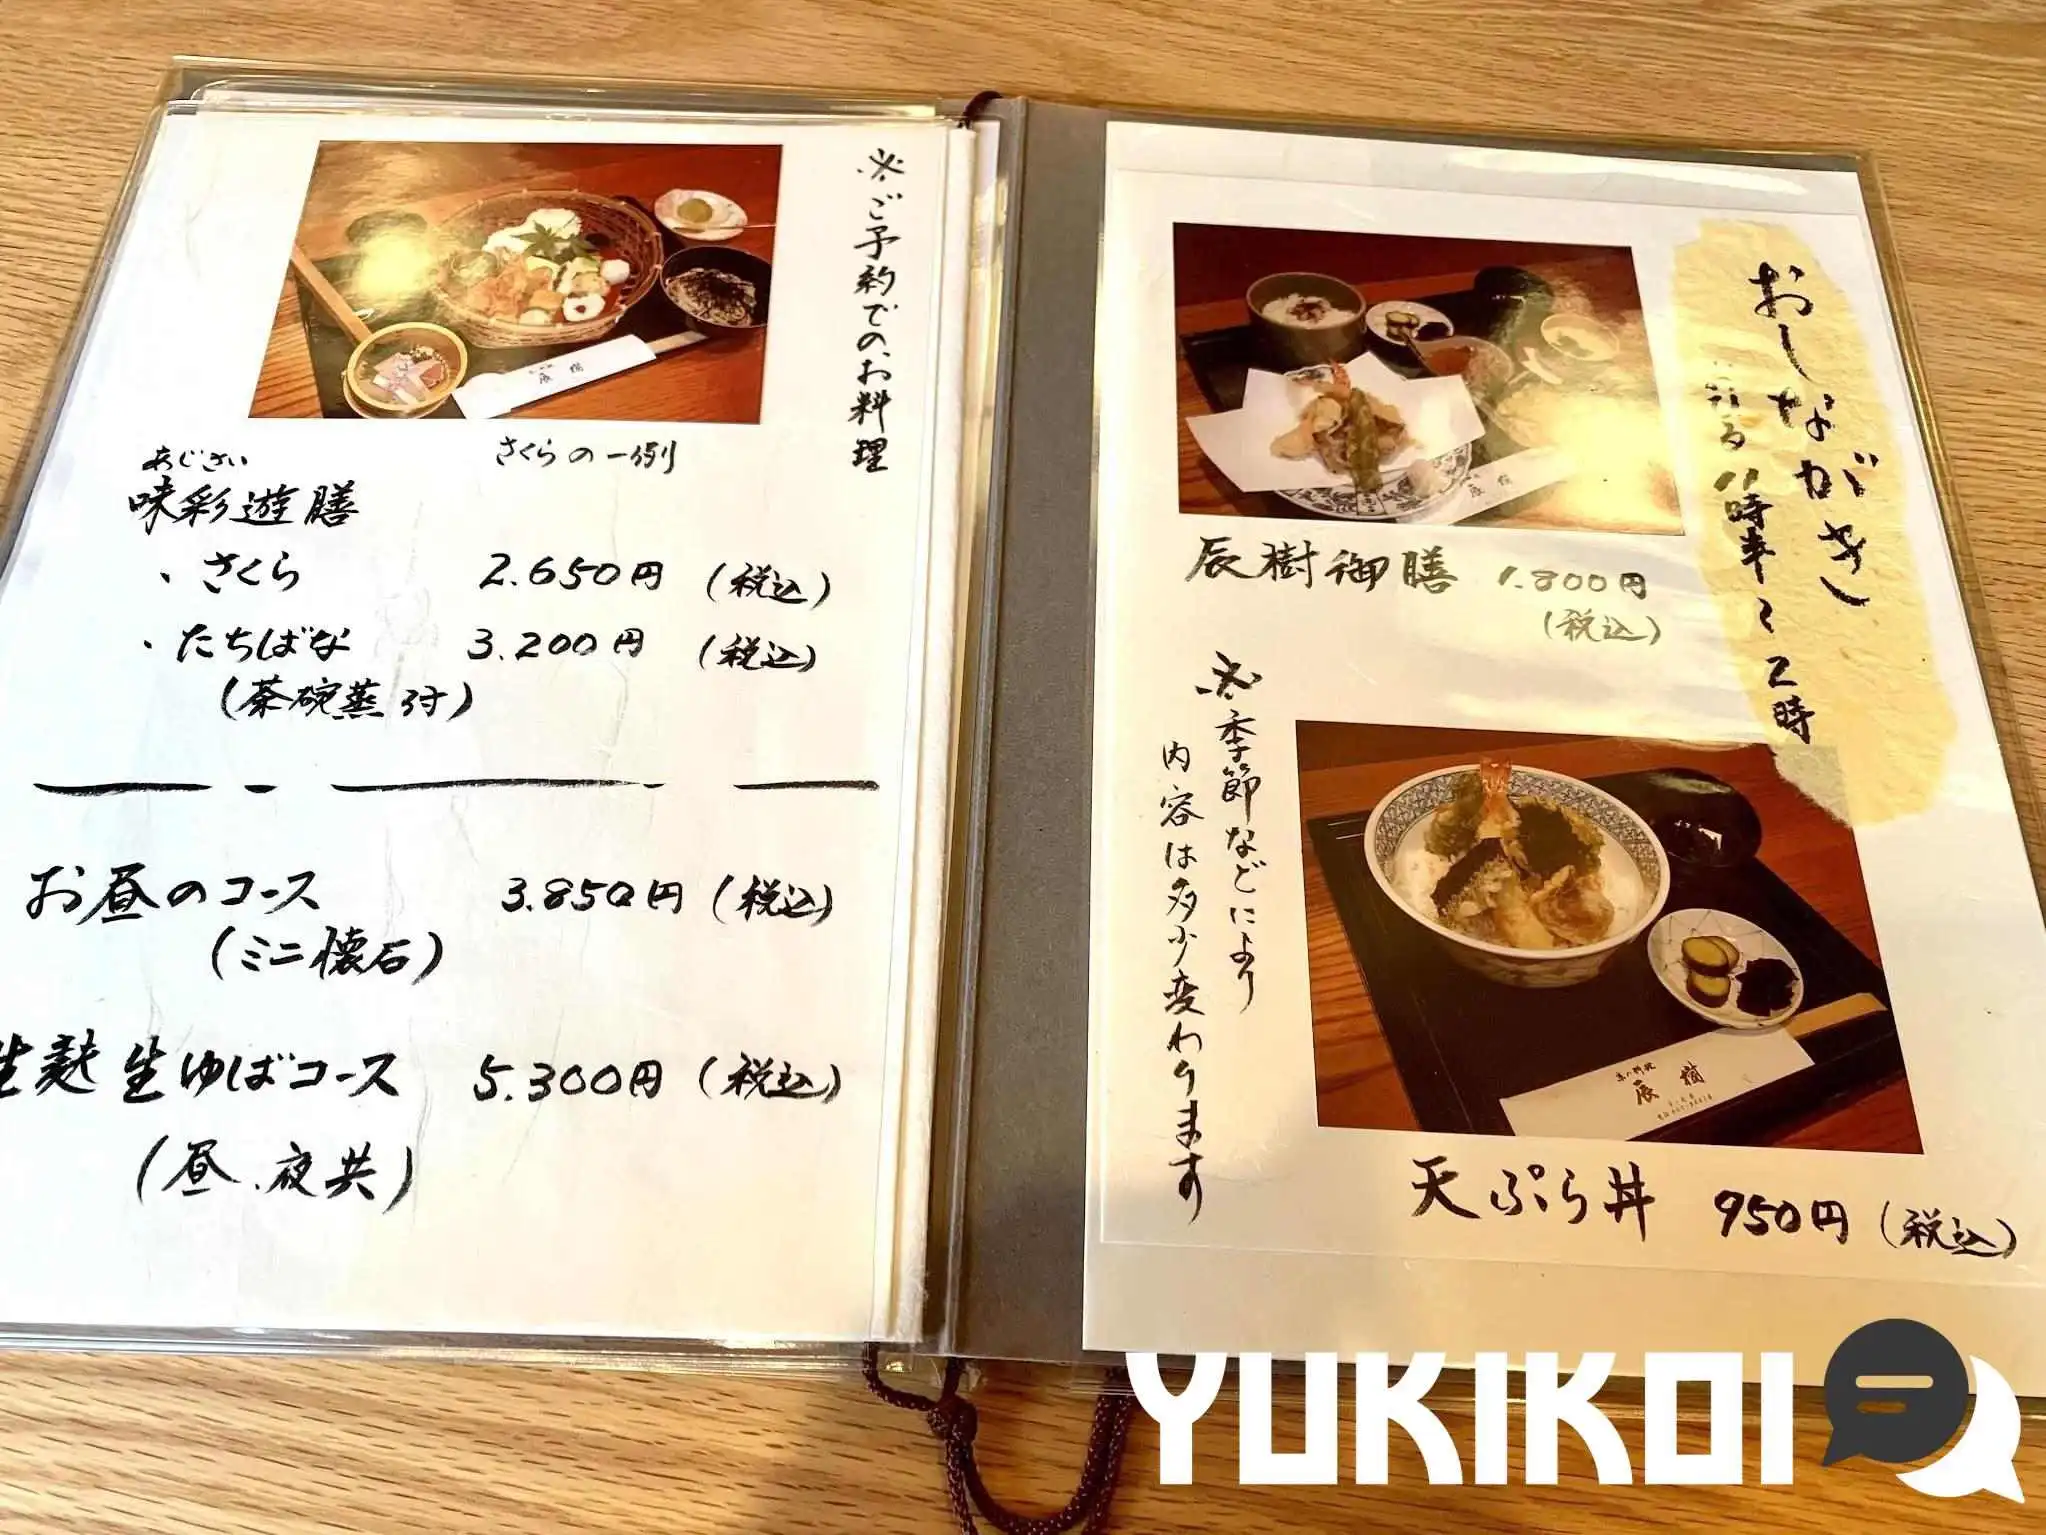 ※ご予約でのお料理
さくらの一例
あじさい
味彩遊膳
・さくら 2.650円 (税込)
・たちばな 3.200円 (税込)
(茶碗蒸付)
お昼のコース 3.850円 (税込)
(ミニ懐石)
生麩生ゆばコース 5.300円 (税込)
(昼、夜共)
おしながき
11時半〜2時
辰樹
辰樹御膳 1.800円
(税込)
※季節などにより
内容は多少変わります
辰樹
京の料理
辰樹
天ぷら丼 950円 (税込)
YUKIKOI